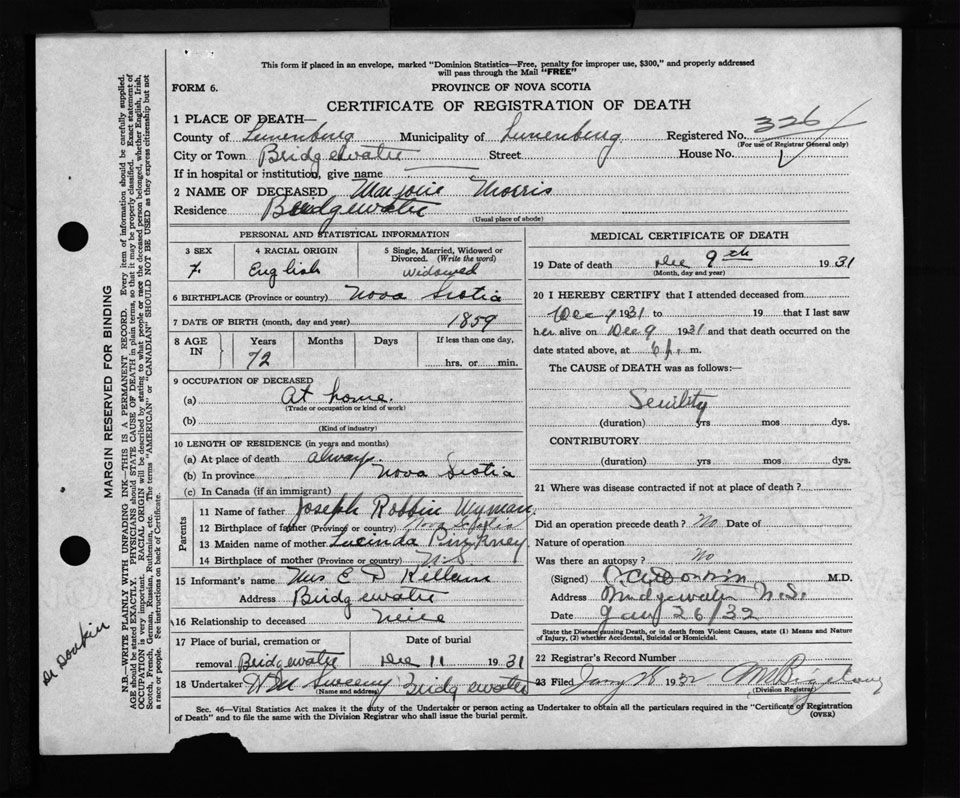 This form if placed in an envelope, marked "Dominion Statistics—Free, penalty for improper use, $300," and properly addressed
will pass through the Mail "FREE"
FORM 6.
PROVINCE OF NOVA SCOTIA
CERTIFICATE OF REGISTRATION OF DEATH
1 PLACE OF DEATH—
County of Lunenburg Municipality of Lunenburg Registered No. 326
(For use of Registrar General only)
City or Town Bridgewater Street House No.
If in hospital or institution, give name
2 NAME OF DECEASED Marjorie Morris
Residence Bridgewater
(Usual place of abode)
PERSONAL AND STATISTICAL INFORMATION
3 SEX 4 RACIAL ORIGIN 5 Single, Married, Widowed or
Divorced. (Write the word)
F. English Widowed
6 BIRTHPLACE (Province or country) Nova Scotia
7 DATE OF BIRTH (month, day and year) 1859
8 AGE IN Years Months Days If less than one day,
72 hrs. or min.
9 OCCUPATION OF DECEASED
(a) At home.
(Trade or occupation or kind of work)
(b)
(Kind of industry)
10 LENGTH OF RESIDENCE (in years and months)
(a) At place of death always.
(b) In province Nova Scotia
(c) In Canada (if an immigrant)
Parents
11 Name of father Joseph Robbin Wyman.
12 Birthplace of father (Province or country) Nova Scotia
13 Maiden name of mother Lucinda Pinkney
14 Birthplace of mother (Province or country) N.S
15 Informant's name Mrs E D Kellam
Address Bridgewater
16 Relationship to deceased Neice
17 Place of burial, cremation or Date of burial
removal Bridgewater Dec 11 1931
18 Undertaker WM Sweeny Bridgewater
(Name and address)
MEDICAL CERTIFICATE OF DEATH
19 Date of death Dec 9th 1931
(Month, day and year)
20 I HEREBY CERTIFY that I attended deceased from
Dec 9 1931 to 19 that I last saw
her alive on Dec 9 1931 and that death occurred on the
date stated above, at 6 p. m.
The CAUSE of DEATH was as follows:—
Senility
(duration) yrs mos dys.
CONTRIBUTORY
(duration) yrs mos dys.
21 Where was disease contracted if not at place of death?
Did an operation precede death? No Date of
Nature of operation
Was there an autopsy? No
(Signed) Donkin M.D.
Address Bridgewater N.S.
Date Jan 26/32
State the Disease causing Death, or in death from Violent Causes, state (1) Means and Nature
of Injury, (2) whether Accidental, Suicidal or Homicidal.
22 Registrar's Record Number
23 Filed Jany 28 1932
(Division Registrar)
Sec. 46—Vital Statistics Act makes it the duty of the Undertaker or person acting as Undertaker to obtain all the particulars required in the "Certificate of Registration
of Death" and to file the same with the Division Registrar who shall issue the burial permit. (OVER)
MARGIN RESERVED FOR BINDING
N.B.—WRITE PLAINLY WITH UNFADING INK—THIS IS A PERMANENT RECORD. Every item of information should be carefully supplied.
AGE should be stated EXACTLY. PHYSICIANS should STATE CAUSE OF DEATH in plain terms, so that it may be properly classified. Exact statement of
OCCUPATION is very important. RACIAL ORIGIN will be described by stating to what people or race the deceased person belonged, whether English, Irish,
Scotch, French, German, Russian, Ruthenian, etc. The terms "AMERICAN" or "CANADIAN" SHOULD NOT BE USED as they express citizenship but not
a race or people. See instructions on back of Certificate.
Dr Donkin